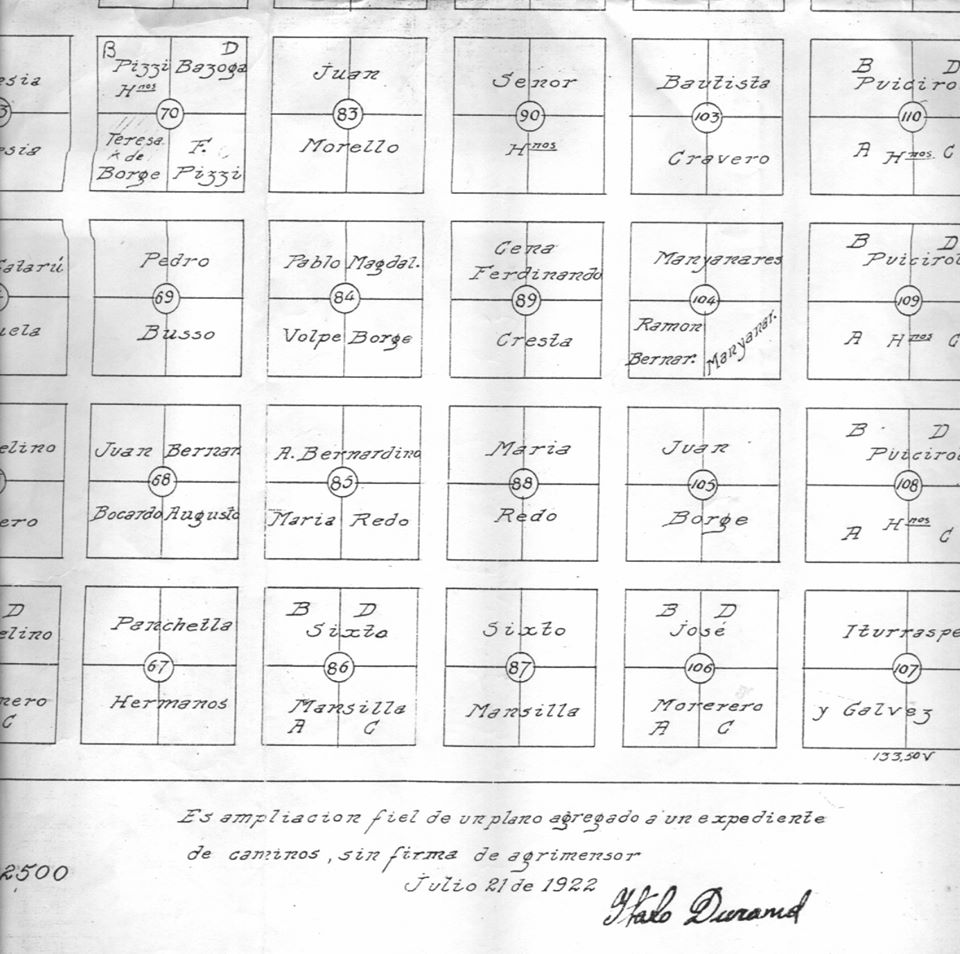 B D
Pizzi Bazoga
Hnos
70
Teresa F.
de
Borge Pizzi
Juan
83
Morello
Senor
90
Hnos
Bautista
103
Cravero
B D
110
A Hnos. C
Pedro
69
Busso
Pablo Magdal.
84
Volpe Borge
Cena
Ferdinando
89
Cresta
Manyanares
104
Ramon
Bernar. Manyanar.
B D
109
A Hnos C
Juan Bernar
68
Bocardo Augusto
A. Bernardino
85
Maria Redo
Maria
88
Redo
Juan
105
Borge
B D
108
A Hnos C
D
C
Panchetta
67
Hermanos
B D
Sixto
86
Mansilla
A C
Sixto
87
Mansilla
B D
José
106
Morerero
A C
Iturraspe
107
y Galvez
133,50V
Es ampliacion fiel de un plano agregado a un expediente
de caminos, sin firma de agrimensor
Julio 21 de 1922
2500
Italo Durand